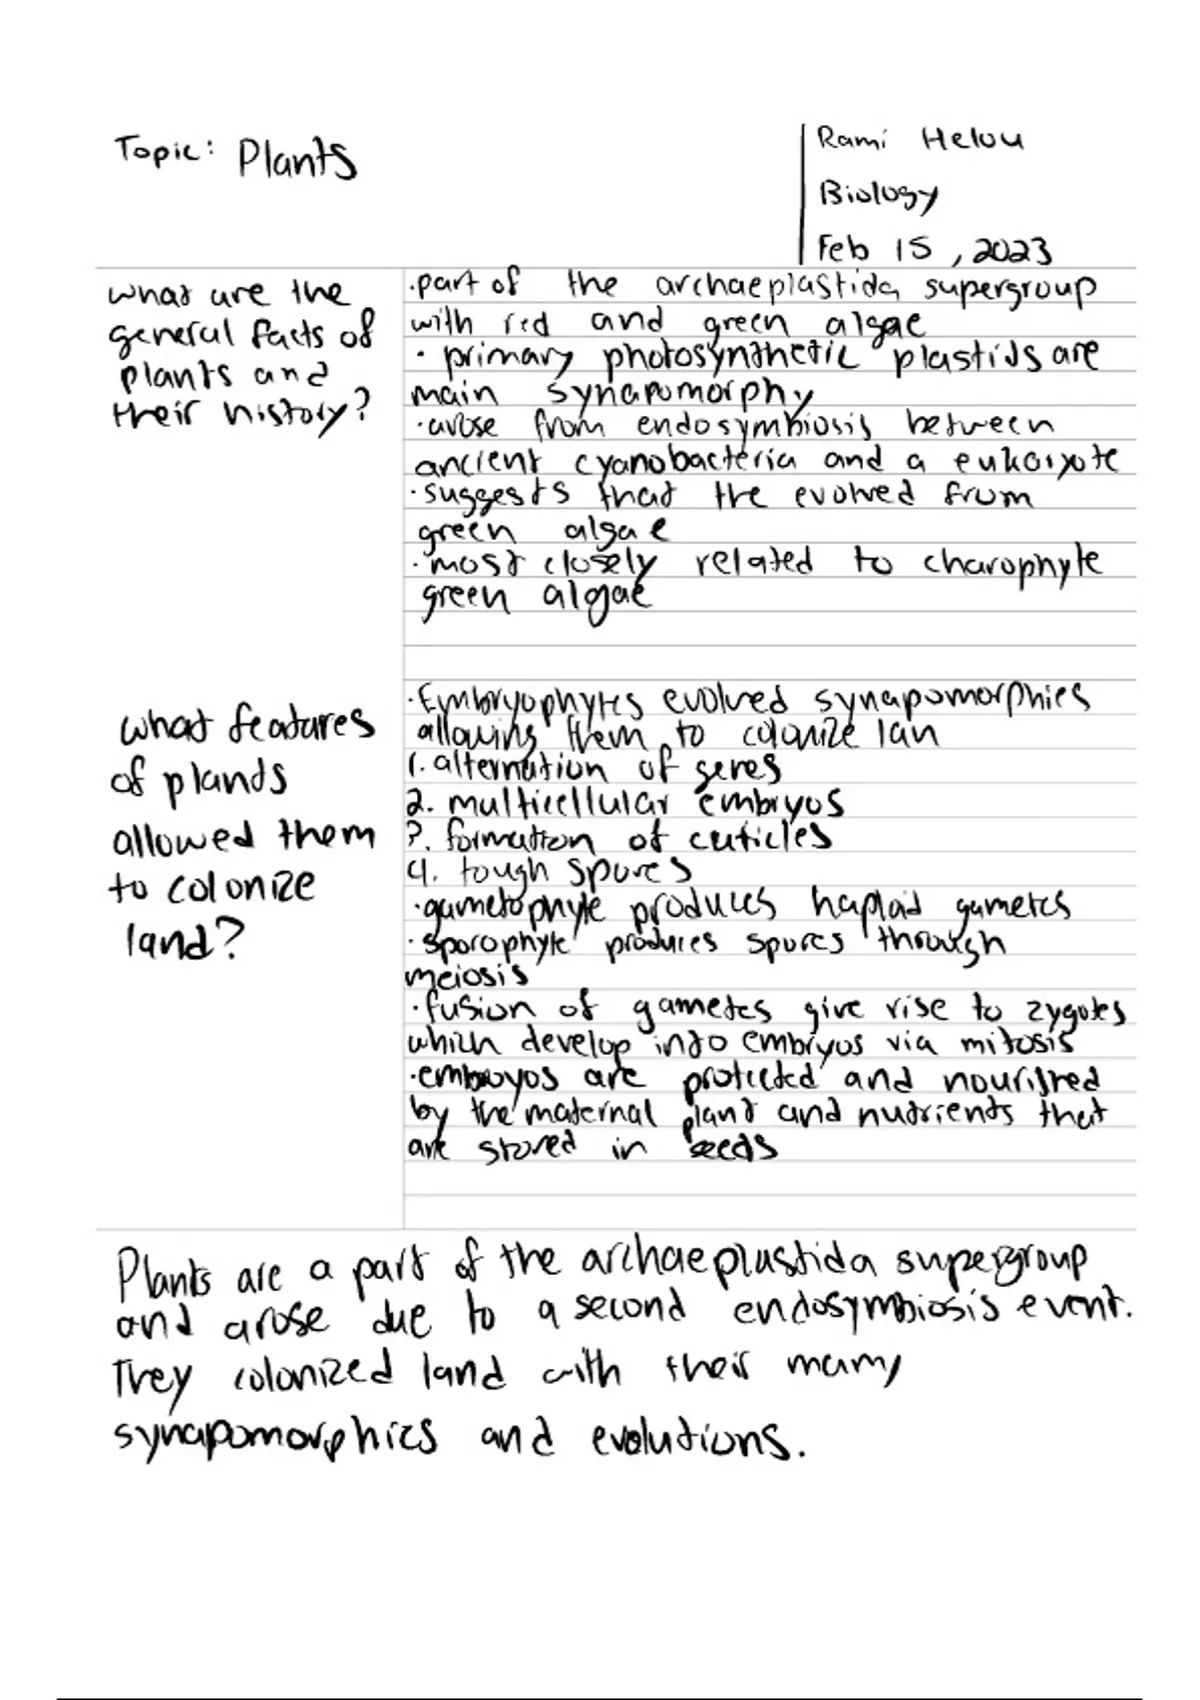 Topic: Plants
Rami Helou
Biology
Feb 15, 2023
what are the
general facts of
plants and
their history?
·part of the archaeplastida supergroup
with red and green algae
· primary photosynthetic plastids are
main synapomorphy
·arose from endosymbiosis between
ancient cyanobacteria and a eukaryote
·suggests that the evolved from
green algae
·most closely related to charophyte
green algae
what features
of plants
allowed them
to colonize
land?
·Embryophytes evolved synapomorphies
allowing them to colonize lan
1. alternation of genes
2. multicellular embryos
3. formation of cuticles
4. tough spores
·gametophyte produces haploid gametes
·sporophyte produces spores through
meiosis
·fusion of gametes give rise to zygotes
which develop into embryos via mitosis
·embryos are protected and nourished
by the maternal plant and nutrients that
are stored in seeds
Plants are a part of the archaeplastida supergroup
and arose due to a second endosymbiosis event.
They colonized land with their many
synapomorphies and evolutions.